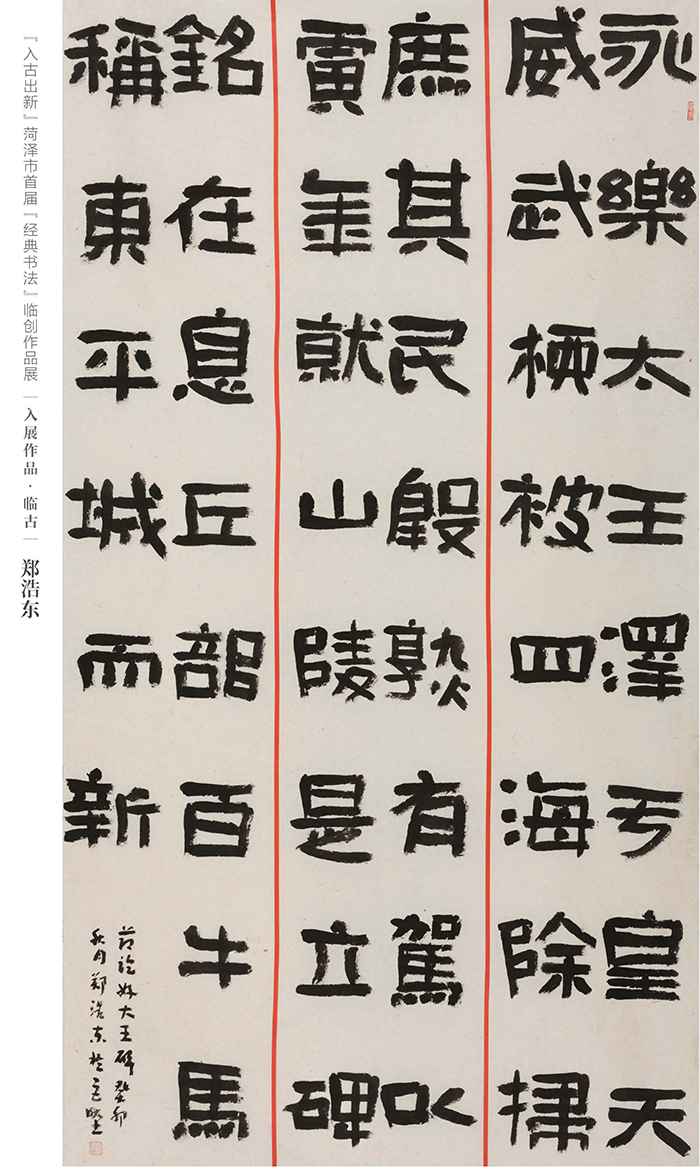 永樂太王澤亐皇天
威武栖被四海除掃
庶其民殷熟有駕以
寅年就山陵是立碑
銘在息丘部百牛馬
稱東平城而新
节临好大王碑癸卯
秋月郑浩东於
『入古出新』菏泽市首届『经典书法』临创作品展｜入展作品·临古｜郑浩东